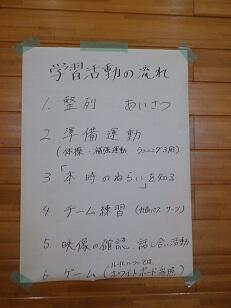 学習活動の流れ
1. 整列 あいさつ
2 準備運動
(体操・補強運動・ランニング3周)
3 「本時のねらい」を知る
4. チーム練習 (対面パス・サーブ)
5. 映像の確認、話し合い活動
6. ゲーム (ルールについては、ホワイトボード参照)